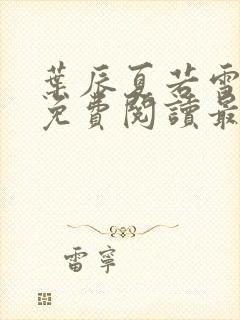 葉辰夏若雪
免費閱讀最
雷寧